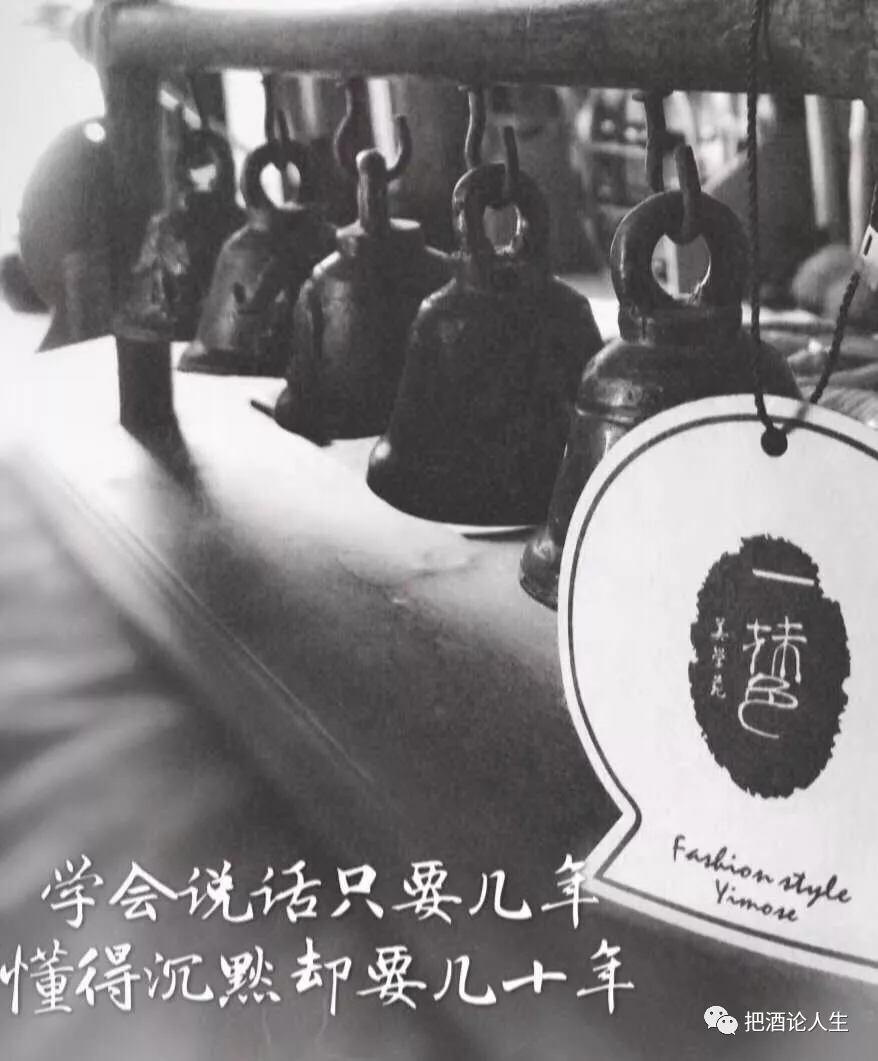 一抹色
美学苑
Fashion style
Yimose
学会说话只要几年
懂得沉默却要几十年
把酒论人生